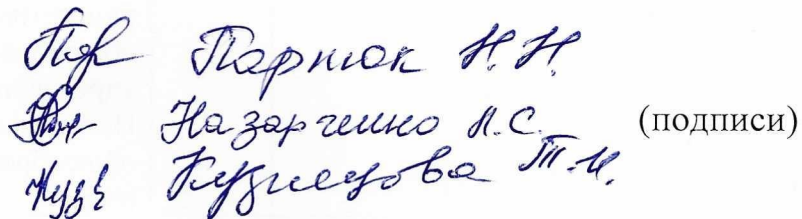 Партюк Н.Н.
Назарченко Л.С. (подписи)
Кузнецова Т.И.